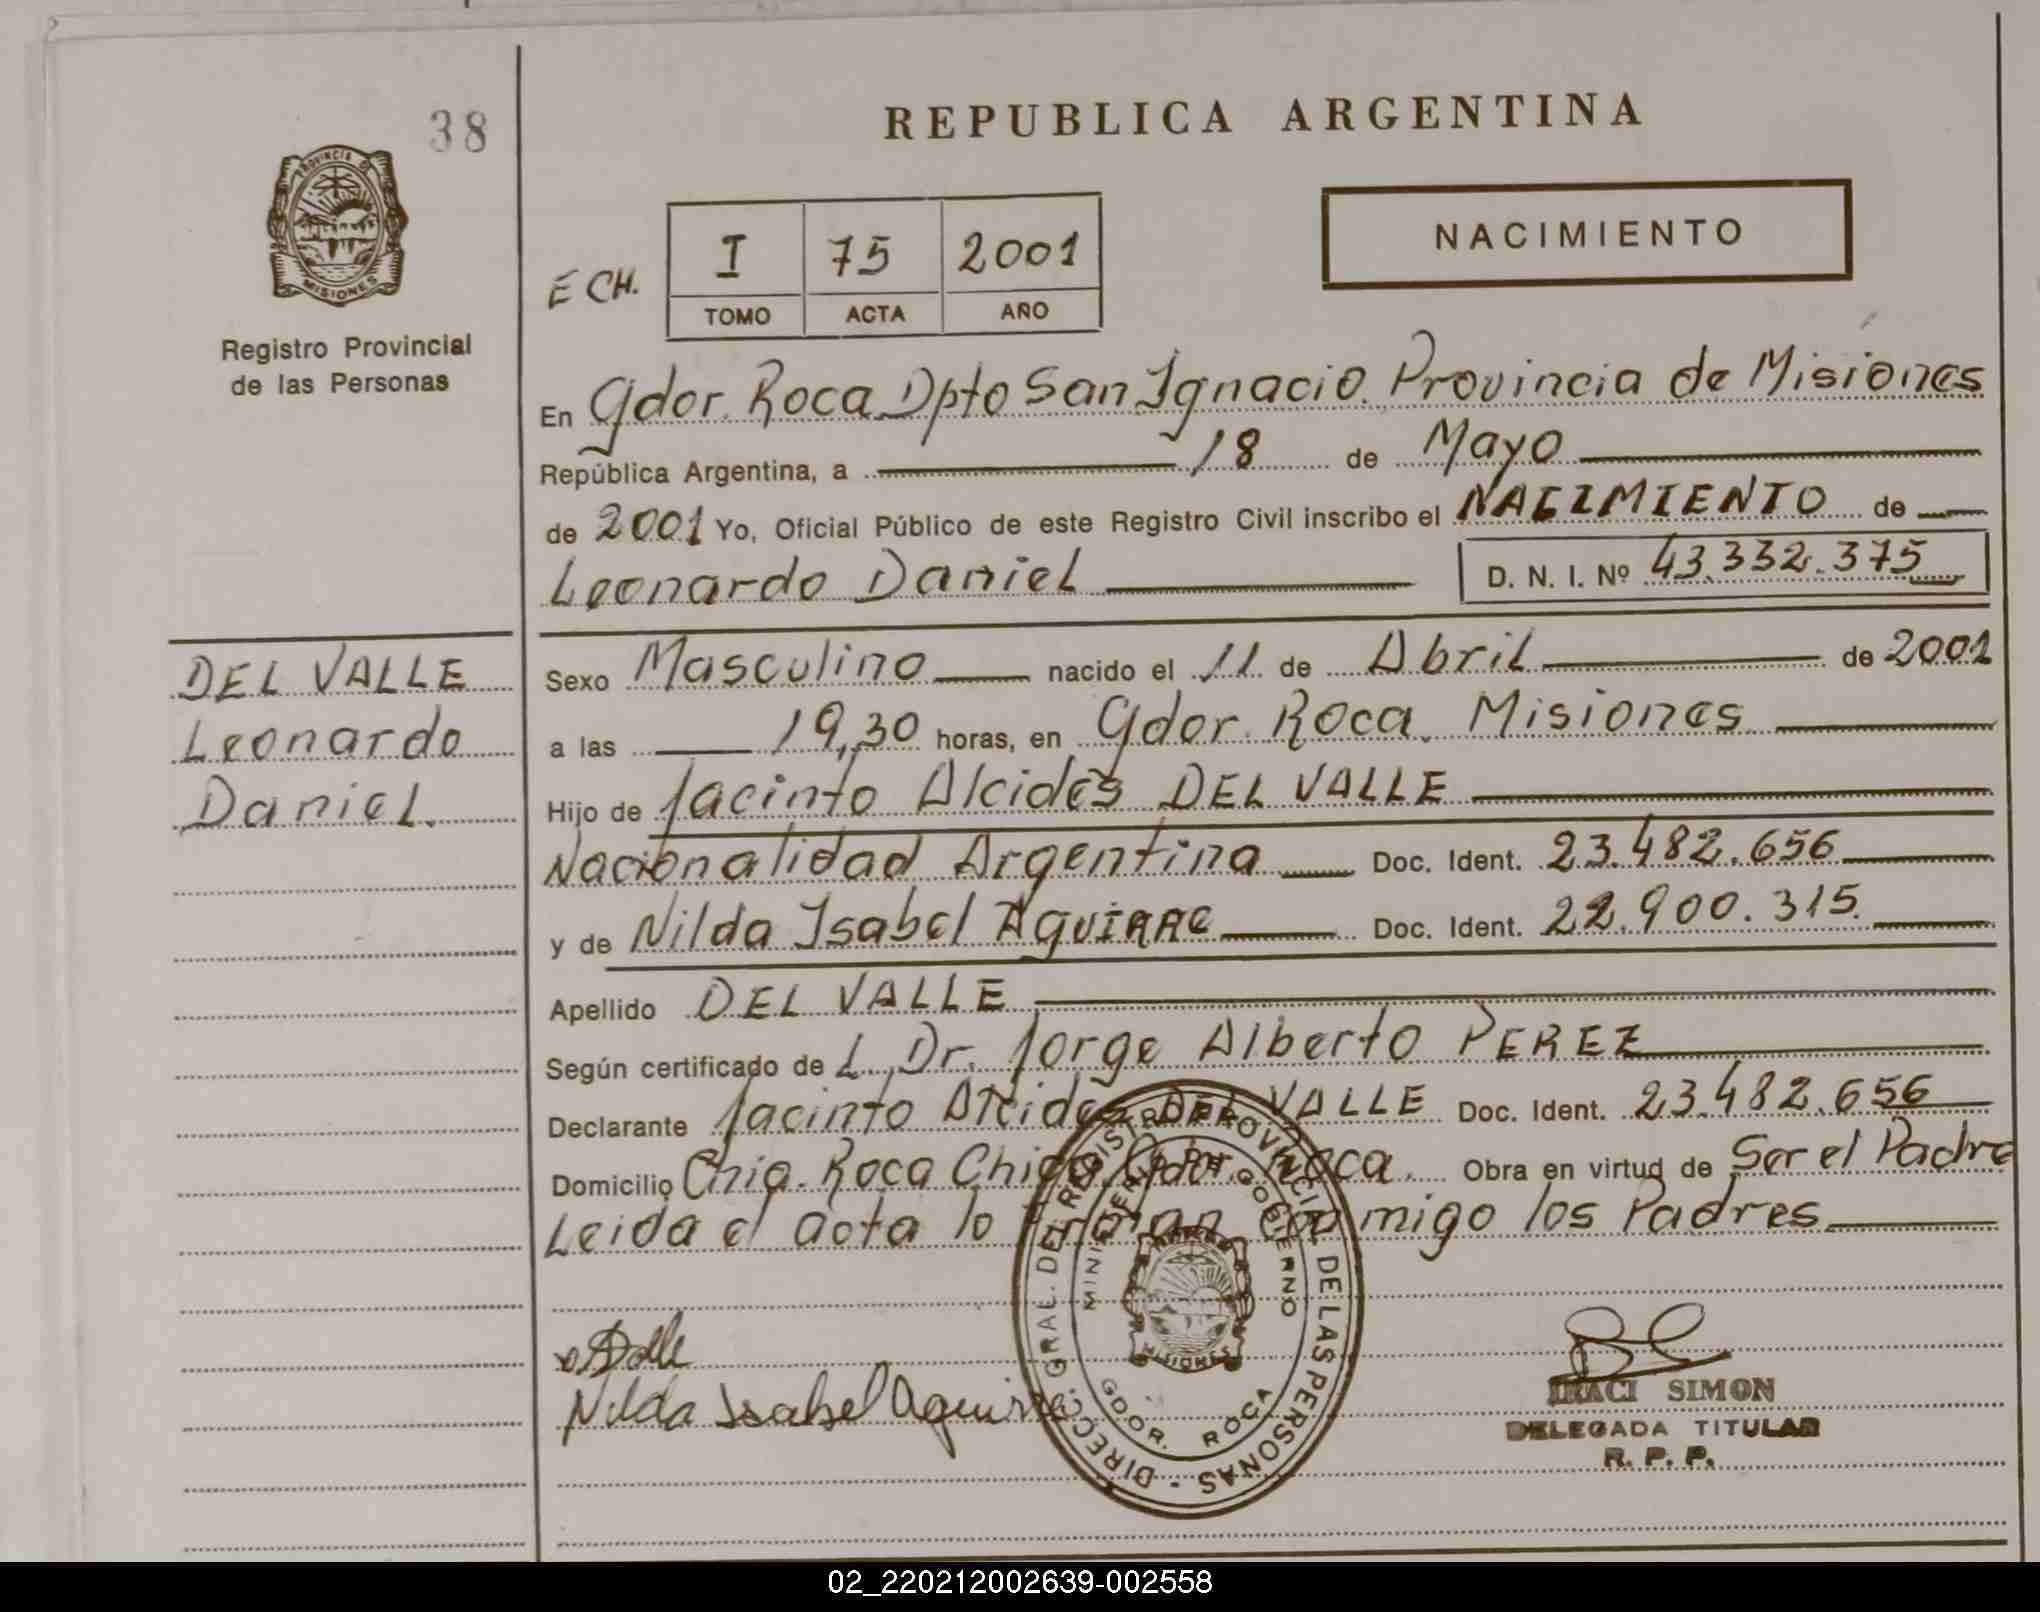 38
REPUBLICA ARGENTINA
PROVINCIA DE
MISIONES
Registro Provincial
de las Personas
NACIMIENTO
ECH.
I 75 2001
TOMO ACTA AÑO
En Gdor. Roca Dpto San Ignacio. Provincia de Misiones
República Argentina, a 18 de Mayo
de 2001 Yo, Oficial Público de este Registro Civil inscribo el NACIMIENTO de
Leonardo Daniel D. N. I. Nº 43.332.375
DEL VALLE
Leonardo
Daniel.
Sexo Masculino nacido el 11 de Abril de 2001
a las 19,30 horas, en Gdor. Roca. Misiones
Hijo de Jacinto Alcides DEL VALLE
Nacionalidad Argentina Doc. Ident. 23.482.656
y de Nilda Isabel Aguirre Doc. Ident. 22.900.315.
Apellido DEL VALLE
Según certificado de L. Dr. Jorge Alberto PEREZ
Declarante Jacinto Alcides DEL VALLE Doc. Ident. 23.482.656
Domicilio Chia. Roca Chica Gdor. Roca. Obra en virtud de Ser el Padre
Leida el acta lo firman conmigo los Padres
Nilda Isabel Aguirre
DIRECC. GRAL. DEL REGISTRO PROVINCIAL DE LAS PERSONAS -
MINISTERIO DE GOBIERNO
MISIONES
GDOR. ROCA
IRACI SIMON
DELEGADA TITULAR
R. P. P.
02_220212002639-002558